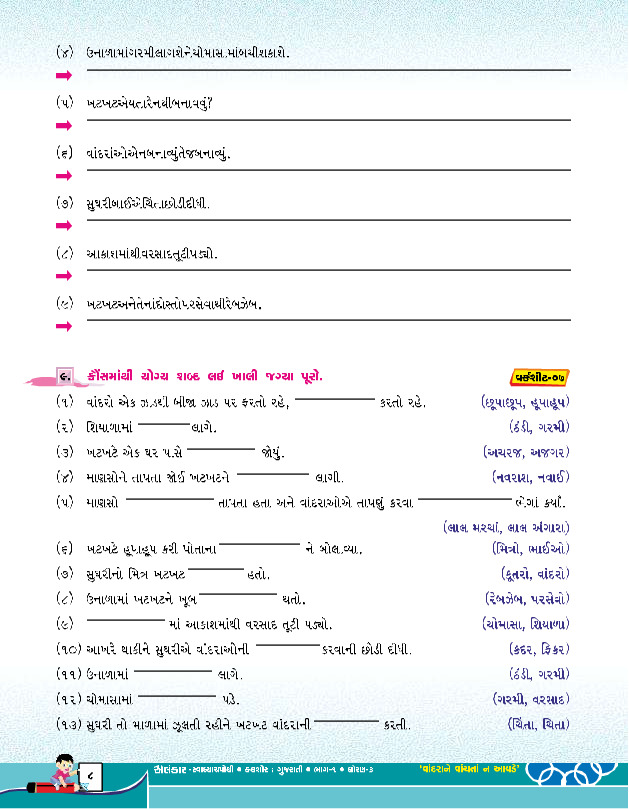 (૪) ઉનાળામાંગરમીલાગશેનેચોમાસામાંબચીશકાશે.
(૫) ખટખટએયતારેનથીબનાવવું?
(૬) વાંદરાંઓએનબનાવ્યુંતેજબનાવ્યું.
(૭) સુઘરીબાઈએચિંતાછોડીદીધી.
(૮) આકાશમાંથીવરસાદતૂટીપડ્યો.
(૯) ખટખટઅનેતેનાંદોસ્તોપરસેવાથીરેબઝેબ.
૯. કૌંસમાંથી યોગ્ય શબ્દ લઈ ખાલી જગ્યા પૂરો. વર્કશીટ-૦૭
(૧) વાંદરો એક ઝાડથી બીજા ઝાડ પર ફરતો રહે, ____________ કરતો રહે. (છૂપાછૂપ, હૂપાહૂપ)
(૨) શિયાળામાં ________ લાગે. (ઠંડી, ગરમી)
(૩) ખટખટે એક ઘર પાસે __________ જોયું. (અચરજ, અજગર)
(૪) માણસોને તાપતા જોઈ ખટખટને ___________ લાગી. (નવરાશ, નવાઈ)
(૫) માણસો _____________ તાપતા હતા અને વાંદરાઓએ તાપણું કરવા ______________ ભેગાં કર્યાં.
(લાલ મરચાં, લાલ અંગારા)
(૬) ખટખટે હૂપાહૂપ કરી પોતાના ____________ ને બોલાવ્યા. (મિત્રો, ભાઈઓ)
(૭) સુઘરીનો મિત્ર ખટખટ ________ હતો. (કૂતરો, વાંદરો)
(૮) ઉનાળામાં ખટખટને ખૂબ ____________ થતો. (રેબઝેબ, પરસેવો)
(૯) ____________ માં આકાશમાંથી વરસાદ તૂટી પડ્યો. (ચોમાસા, શિયાળા)
(૧૦) આખરે થાકીને સુઘરીએ વાંદરાઓની __________ કરવાની છોડી દીધી. (કદર, ફિકર)
(૧૧) ઉનાળામાં ____________ લાગે. (ઠંડી, ગરમી)
(૧૨) ચોમાસામાં ____________ પડે. (ગરમી, વરસાદ)
(૧૩) સુઘરી તો માળામાં ઝૂલતી રહીને ખટખટ વાંદરાની __________ કરતી. (ચિંતા, ચિતા)
૮ અલંકાર - સ્વાધ્યાયપોથી ● કલશોર : ગુજરાતી ● ભાગ-૧ ● ધોરણ-૩ 'વાંદરાને વાંચતાં ન આવડે'